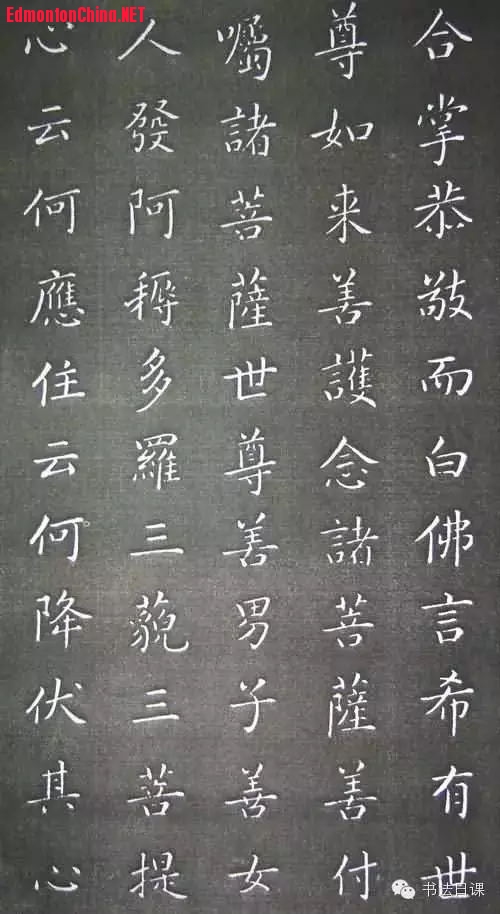 EdmontonChina.NET
合掌恭敬而白佛言希有世
尊如来善護念諸菩薩善付
囑諸菩薩世尊善男子善女
人發阿耨多羅三藐三菩提
心云何應住云何降伏其心
书法日课